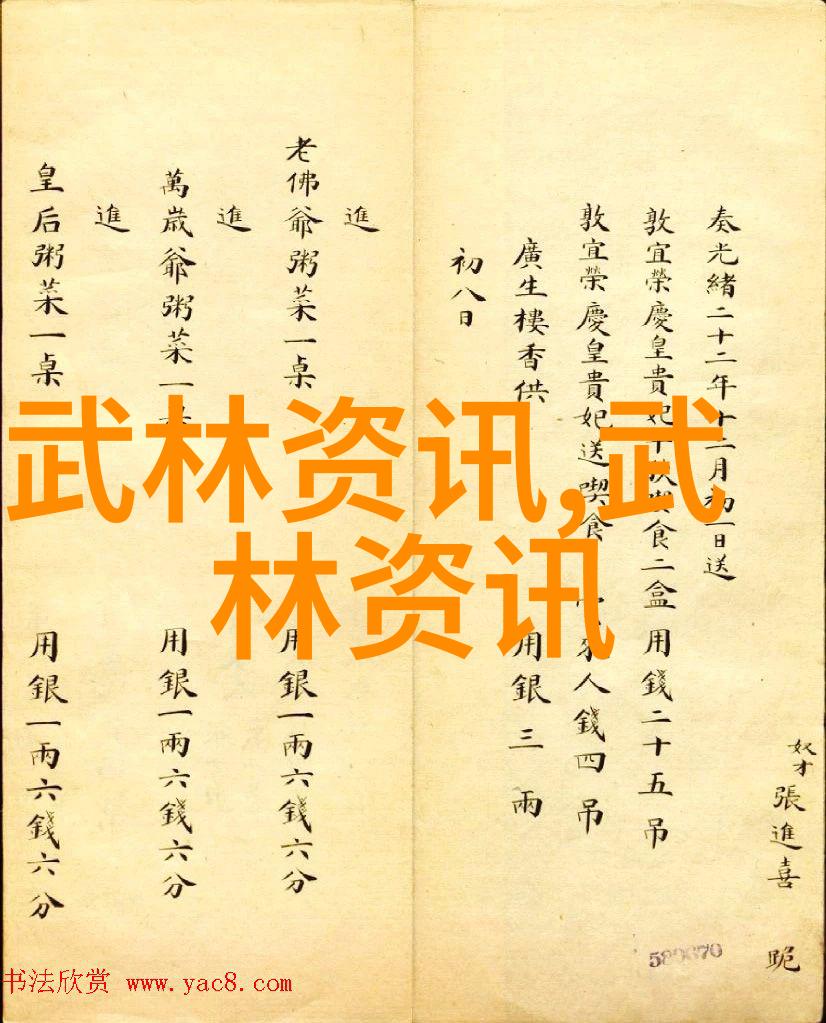 奴才張進喜 跪
奏光緒二十二年十二月初一日送
敦宜榮慶皇貴妃喫食二盒用錢二十五吊
敦宜榮慶皇貴妃送喫食 人錢四吊
廣生樓香供 用銀三兩
初八日
進
老佛爺粥菜一桌 用銀一兩六錢六分
進
萬歲爺粥菜一 用銀一兩六錢六分
進
皇后粥菜一桌 用銀一兩六錢六分
武林资讯,武
林资讯
书法欣赏 www.yac8.com